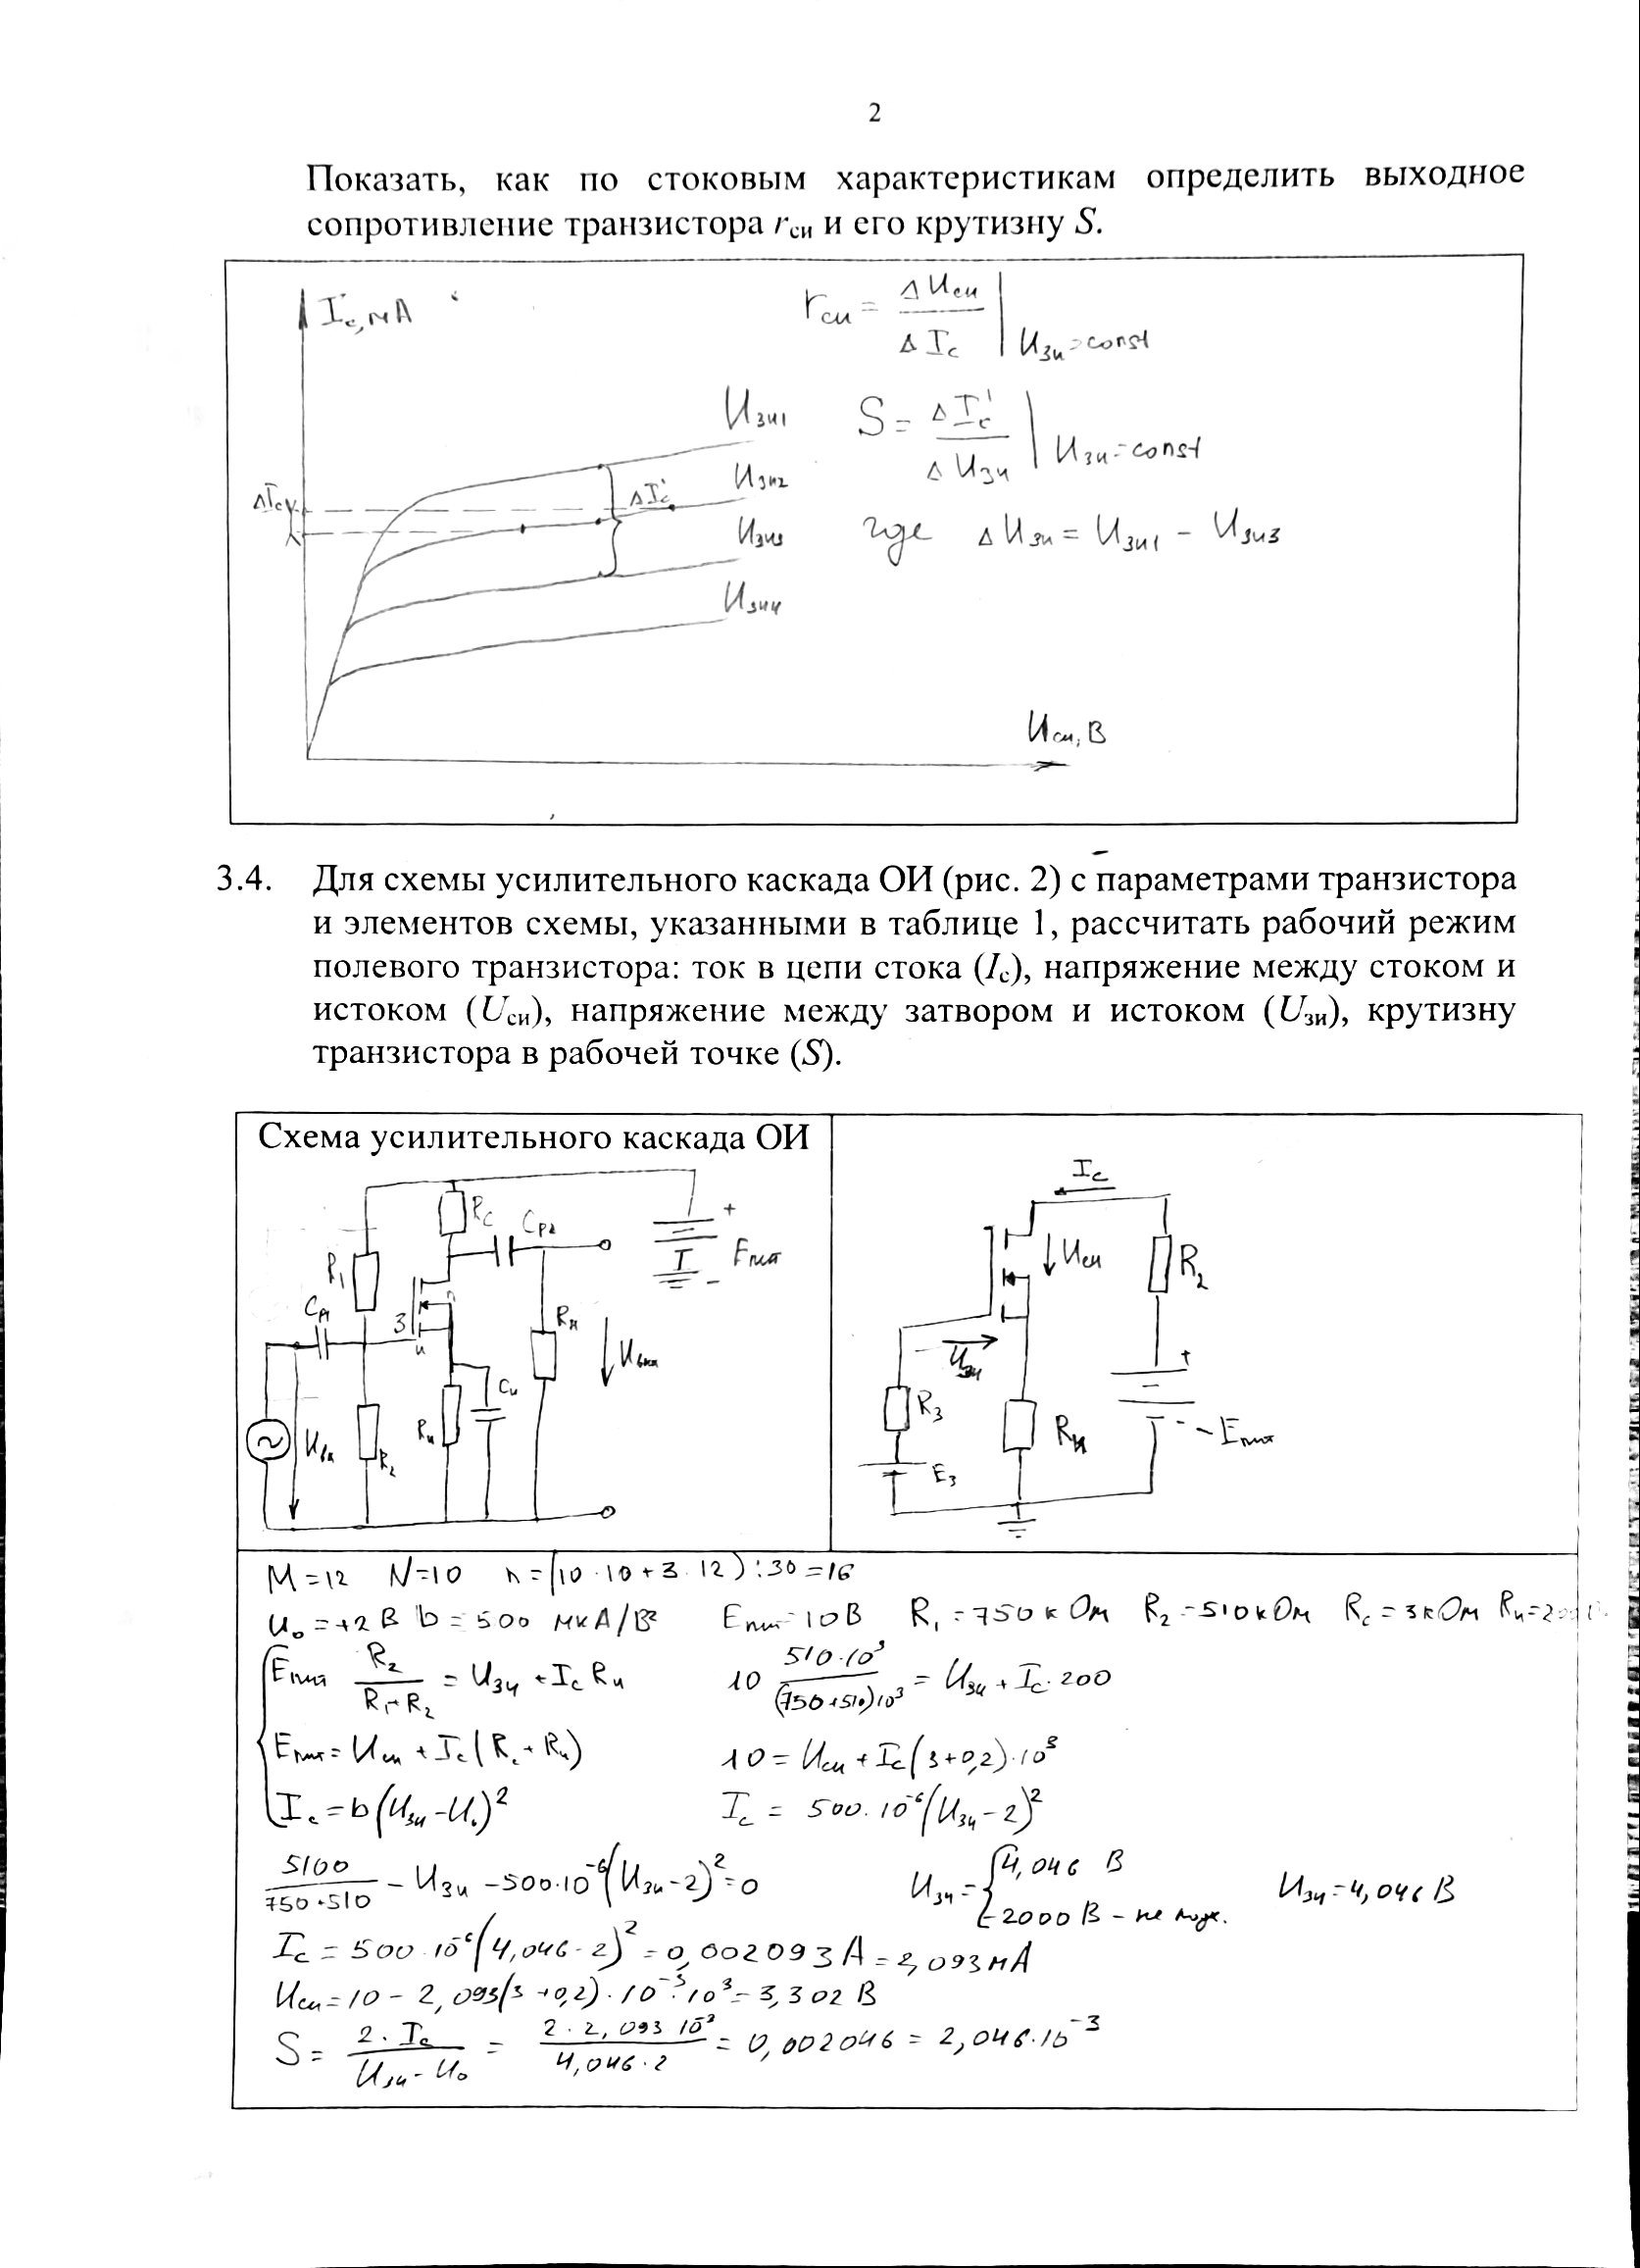 2
Показать, как по стоковым характеристикам определить выходное
сопротивление транзистора rси и его крутизну S.
Iс, мА
rси = ΔUси / ΔIс | Uзи = const
S = ΔIс' / ΔUзи | Uзи = const
где ΔUзи = Uзи1 - Uзи3
Uзи1
Uзи2
Uзи3
Uзи4
ΔIс
ΔIс'
Uси, В
3.4. Для схемы усилительного каскада ОИ (рис. 2) с параметрами транзистора
и элементов схемы, указанными в таблице 1, рассчитать рабочий режим
полевого транзистора: ток в цепи стока (Iс), напряжение между стоком и
истоком (Uси), напряжение между затвором и истоком (Uзи), крутизну
транзистора в рабочей точке (S).
Схема усилительного каскада ОИ
Rс
Cр2
+
Eпит
-
R1
Cр1
З
и
Rн
Uвых
Cи
Rи
Uвх
R2
Iс
Uси
R2
Uзи
R3
Rи
+
- Eпит
E3
M = 12 N = 10 n = (10 · 10 + 3 · 12) : 30 = 16
U0 = +2 В b = 500 мкА/В² Eпит = 10 В R1 = 750 кОм R2 = 510 кОм Rс = 3 кОм Rи = 200
Eпит R2 / (R1 + R2) = Uзи + Iс Rи 10 510·10³ / (750+510)10³ = Uзи + Iс · 200
Eпит = Uси + Iс(Rс + Rи) 10 = Uси + Iс(3+0,2)·10³
Iс = b(Uзи - U0)² Iс = 500·10⁻⁶(Uзи - 2)²
5100 / (750+510) - Uзи - 500·10⁻⁶(Uзи - 2)² = 0 Uзи = { 4,046 В Uзи = 4,046 В
-2000 В - не подх.
Iс = 500·10⁻⁶(4,046 - 2)² = 0,002093 А = 2,093 мА
Uси = 10 - 2,093(3+0,2)·10⁻³·10³ = 3,302 В
S = 2·Iс / (Uзи - U0) = 2·2,093·10⁻³ / (4,046 - 2) = 0,002046 = 2,046·10⁻³